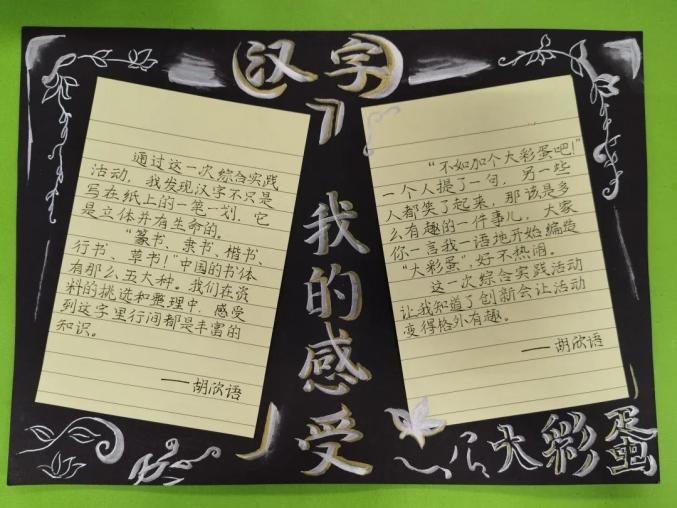 汉字
我的感受
通过这一次综合实践
活动，我发现汉字不只是
写在纸上的一笔一划，它
是立体并有生命的。
“篆书、隶书、楷书、
行书、草书！”中国的书体
有那么五大种。我们在资
料的挑选和整理中，感受
到这字里行间都是丰富的
知识。
——胡欣语
“不如加个大彩蛋吧！”
一个人提了一句，另一些
人都笑了起来，那该是多
么有趣的一件事儿，大家
你一言我一语地开始编造
“大彩蛋”，好不热闹。
这一次综合实践活动
让我知道了创新会让活动
变得格外有趣。
——胡欣语
大彩蛋